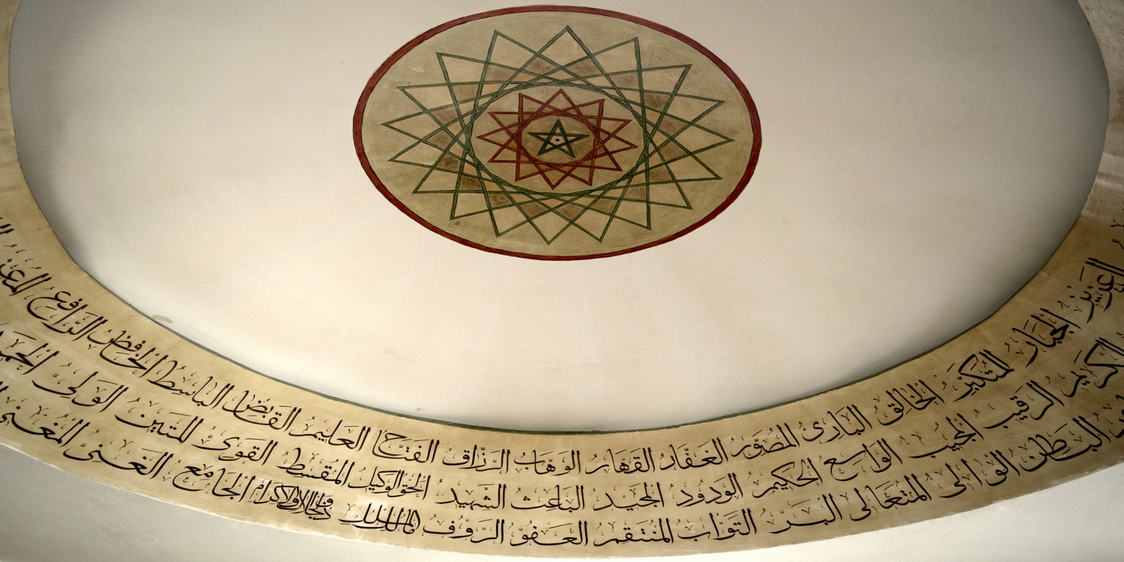 العزيز الجبار المتكبر الخالق البارئ المصور الغفار القهار الوهاب الرزاق الفتاح العليم القابض الباسط الخافض الرافع المعز
الكريم الرقيب المجيب الواسع الحكيم الودود المجيد الباعث الشهيد الحق الوكيل المقسط القوى المتين الولى
الباطن الوالى المتعالى البر التواب المنتقم العفو الرؤف مالك الملك ذو الجلال والاكرام الجامع الغنى المغنى